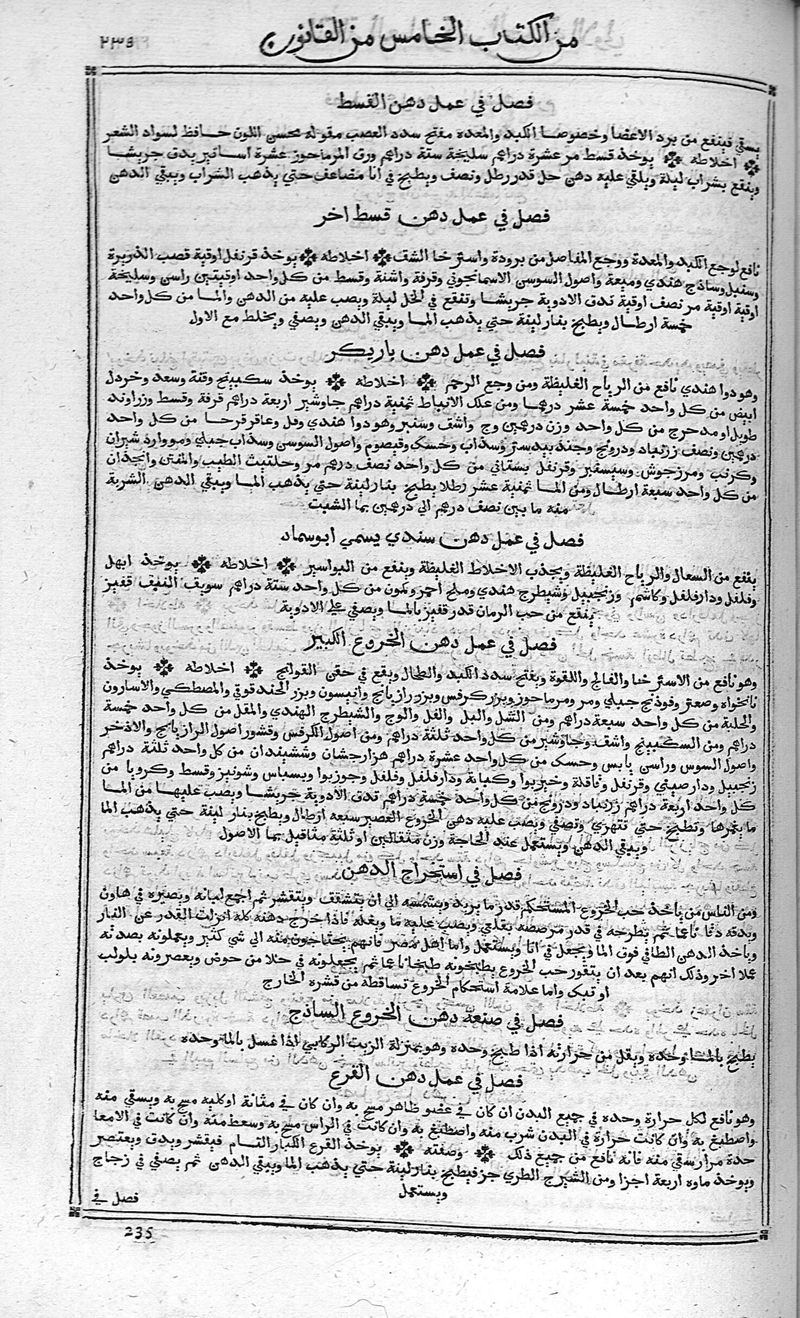 من الكتاب الخامس من القانون
٢٣٥
فصل في عمل دهن القسط
يسقي فينفع من برد الاعضا وخصوصا الكبد والمعده مفتح سدد العصب مقوله محسن اللون حافظ لسواد الشعر
اخلاطه يوخذ قسط مر عشرة دراهم سليخة ستة دراهم ورق المرماحوز عشرة اساتير يدق جريشا
وينقع بشراب ليلة ويلقي عليه دهن حل قدر رطل ونصف ويطبخ في انا مضاعف حتي يذهب الشراب ويبقي الدهن
فصل في عمل دهن قسط اخر
نافع لوجع الكبد والمعدة ووجع المفاصل من برودة واسترخا الشف اخلاطه يوخذ قرنفل اوقية قصب الذريرة
وسنبل وساذج هندي وميعة واصول السوسن الاسمانجوني وقرفة واشنة وقسط من كل واحد اوقيتين راسن وسليخة
اوقية اوقية مر نصف اوقية تدق الادوية جريشا وتنقع في الخل ليلة ويصب عليه من الدهن والما من كل واحد
خمسة ارطال ويطبخ بنار لينة حتي يذهب الما ويبقي الدهن ويصفي ويخلط مع الاول
فصل في عمل دهن باريكر
وهو دوا هندي نافع من الرياح الغليظة ومن وجع الرحم اخلاطه يوخذ سكبينج وقنة وسعد وخردل
ابيض من كل واحد خمسة عشر درهما ومن علك الانباط ثمنية دراهم جاوشير اربعة دراهم قرفة وقسط وزراوند
طويل او مدحرج من كل واحد وزن درهمين وج واشف وسنبر وهو دوا هندي وفل وعاقرقرحا من كل واحد
درهمين ونصف زرنباد ودرونج وجند بيدستر وسذاب وحسك وقيصوم واصول السوسن وسذاب جبلي ومو وارد شيران
وكرنب ومرزجوش وسيسنبر وقرنفل بستاني من كل واحد نصف درهم مر وحلتيث الطيب والمنتن وانجذان
من كل واحد سبعة ارطال ومن الما ثمنية عشر رطلا يطبخ بنار لينة حتي يذهب الما ويبقي الدهن الشربة
منه ما بين نصف درهم الى درهمين بما الشبت
فصل في عمل دهن سندي يسمي ابوسماد
ينفع من السعال والرياح الغليظة ويجذب الاخلاط الغليظة وينفع من البواسير اخلاطه يوخذ ابهل
وفلفل ودارفلفل وكاشم وزنجبيل وشيطرج هندي وملح احمر وكمون من كل واحد ستة دراهم سويف النبف قفيز
ينقع من حب الرمان قدر قفيز بالما ويصفي علي الادوية
فصل في عمل دهن الخروع الكبير
وهو نافع من الاسترخا والفالج واللقوة ويفتح سدد الكبد والطحال ويقع في حقن القولنج اخلاطه يوخذ
نانخواه وصعتر وفوذنج جبلي ومر ومرماحوز وبزر كرفس وبزر رازيانج وانيسون وبزر الحندقوقي والمصطكي والاسارون
والحلبة من كل واحد سبعة دراهم ومن الشل والبل والفل والوج والشيطرج الهندي والمقل من كل واحد خمسة
دراهم ومن السكبينج واشف وجاوشير من كل واحد ثلثة دراهم ومن اصول الكرفس وقشور اصول الرازيانج والاذخر
واصول السوس وراسن يابس وحسك من كل واحد عشرة دراهم هزارجشان وششبندان من كل واحد ثلثة دراهم
زنجبيل ودارصيني وقرنفل وناقلة وخيربوا وكبابة ودارفلفل وفلفل وجوزبوا وبسباس وشونيز وقسط وكرويا من
كل واحد اربعة دراهم زرنباد ودرونج من كل واحد خمسة دراهم تدق الادوية جريشا ويصب عليها من الما
ما يغمرها وتطبخ حتي تتهري وتصفي ويصب عليه دهن الخروع العصير سبعه ارطال ويطبخ بنار لينة حتي يذهب الما
ويبقي الدهن ويستعمل عند الحاجة وزن مثقالين او ثلثة مثاقيل بما الاصول
فصل في استخراج الدهن
ومن الناس من ياخذ حب الخروع المستحكم قدر ما يريد ويشمسه الى ان يتشقف ويتقشر ثم اجمع لبابه ويصيره في هاون
ويدقه دقا ناعما ثم يطرحه في قدر مرصصه بقلعي ويصب عليه ما ويغله فاذا خرج دهنه كله انزلت القدر عن النار
وياخذ الدهن الطافي فوق الما ويجعل في انا ويستعمل واما اهل مصر فانهم يحتاجون منه الي شي كثير ويعملونه بصدنه
عملا اخر وذلك انهم بعد ان يتقور حب الخروع يطبخونه طبخا ناعما ثم يجعلونه في خلا من حوض ويعصرونه بلولب
او تبك واما علامة استحكام الخروع تساقطه من قشره الخارج
فصل في صنعه دهن الخروع الساذج
يطبخ بالما وحده ويقل من حرارته اذا طبخ وحده وهو بمنزلة الزيت الركابي اذا غسل بالما وحده
فصل في عمل دهن القرع
وهو نافع لكل حرارة وحده في جميع البدن ان كان في عضو ظاهر مسح به وان كان في مثانة او كليه مسح به ويسقي منه
واصطبغ به وان كانت حرارة في البدن شرب منه واصطبغ به وان كانت في الراس مسح به وسعط منه وان كانت في الامعا
حدة مرار سقي منه فانه نافع من جميع ذلك وصفته يوخذ القرع الكبار التام فيقشر ويدق ويعتصر
ويوخذ ماوه اربعة اجزا ومن الشيرج الطري جز فيطبخ بنار لينة حتي يذهب الما ويبقي الدهن ثم يصفي في زجاج
ويستعمل
فصل في
235